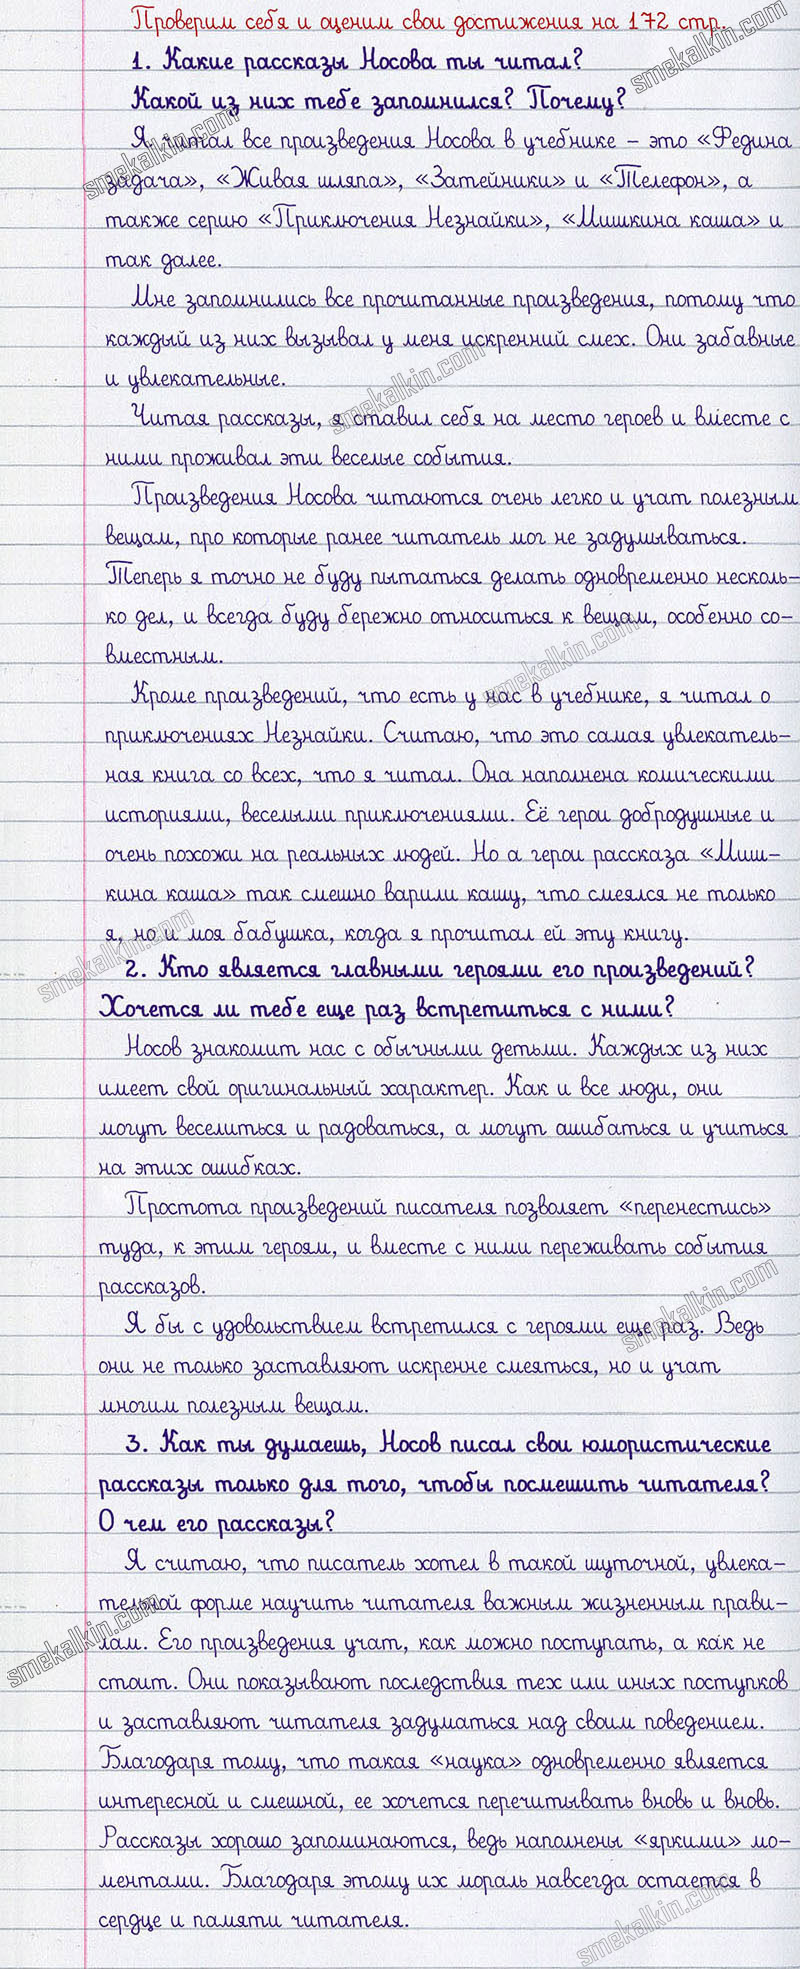 Проверим себя и оценим свои достижения на 172 стр.
1. Какие рассказы Носова ты читал?
Какой из них тебе запомнился? Почему?
Я читал все произведения Носова в учебнике – это «Федина
задача», «Живая шляпа», «Затейники» и «Телефон», а
также серию «Приключения Незнайки», «Мишкина каша» и
так далее.
Мне запомнились все прочитанные произведения, потому что
каждый из них вызывал у меня искренний смех. Они забавные
и увлекательные.
Читая рассказы, я ставил себя на место героев и вместе с
ними проживал эти веселые события.
Произведения Носова читаются очень легко и учат полезным
вещам, про которые ранее читатель мог не задумываться.
Теперь я точно не буду пытаться делать одновременно несколь-
ко дел, и всегда буду бережно относиться к вещам, особенно со-
вместным.
Кроме произведений, что есть у нас в учебнике, я читал о
приключениях Незнайки. Считаю, что это самая увлекатель-
ная книга со всех, что я читал. Она наполнена комическими
историями, веселыми приключениями. Её герои добродушные и
очень похожи на реальных людей. Но а герои рассказа «Миш-
кина каша» так смешно варили кашу, что смеялся не только
я, но и моя бабушка, когда я прочитал ей эту книгу.
2. Кто является главными героями его произведений?
Хочется ли тебе еще раз встретиться с ними?
Носов знакомит нас с обычными детьми. Каждых из них
имеет свой оригинальный характер. Как и все люди, они
могут веселиться и радоваться, а могут ашибаться и учиться
на этих ошибках.
Простота произведений писателя позволяет «перенестись»
туда, к этим героям, и вместе с ними переживать события
рассказов.
Я бы с удовольствием встретился с героями еще раз. Ведь
они не только заставляют искренне смеяться, но и учат
многим полезным вещам.
3. Как ты думаешь, Носов писал свои юмористические
рассказы только для того, чтобы посмешить читателя?
О чем его рассказы?
Я считаю, что писатель хотел в такой шуточной, увлека-
тельной форме научить читателя важным жизненным прави-
лам. Его произведения учат, как можно поступать, а как не
стоит. Они показывают последствия тех или иных поступков
и заставляют читателя задуматься над своим поведением.
Благодаря тому, что такая «наука» одновременно является
интересной и смешной, ее хочется перечитывать вновь и вновь.
Рассказы хорошо запоминаются, ведь наполнены «яркими» мо-
ментами. Благодаря этому их мораль навсегда остается в
сердце и памяти читателя.
smekalkin.com
smekalkin.com
smekalkin.com
smekalkin.com
smekalkin.com
smekalkin.com
smekalkin.com
smekalkin.com